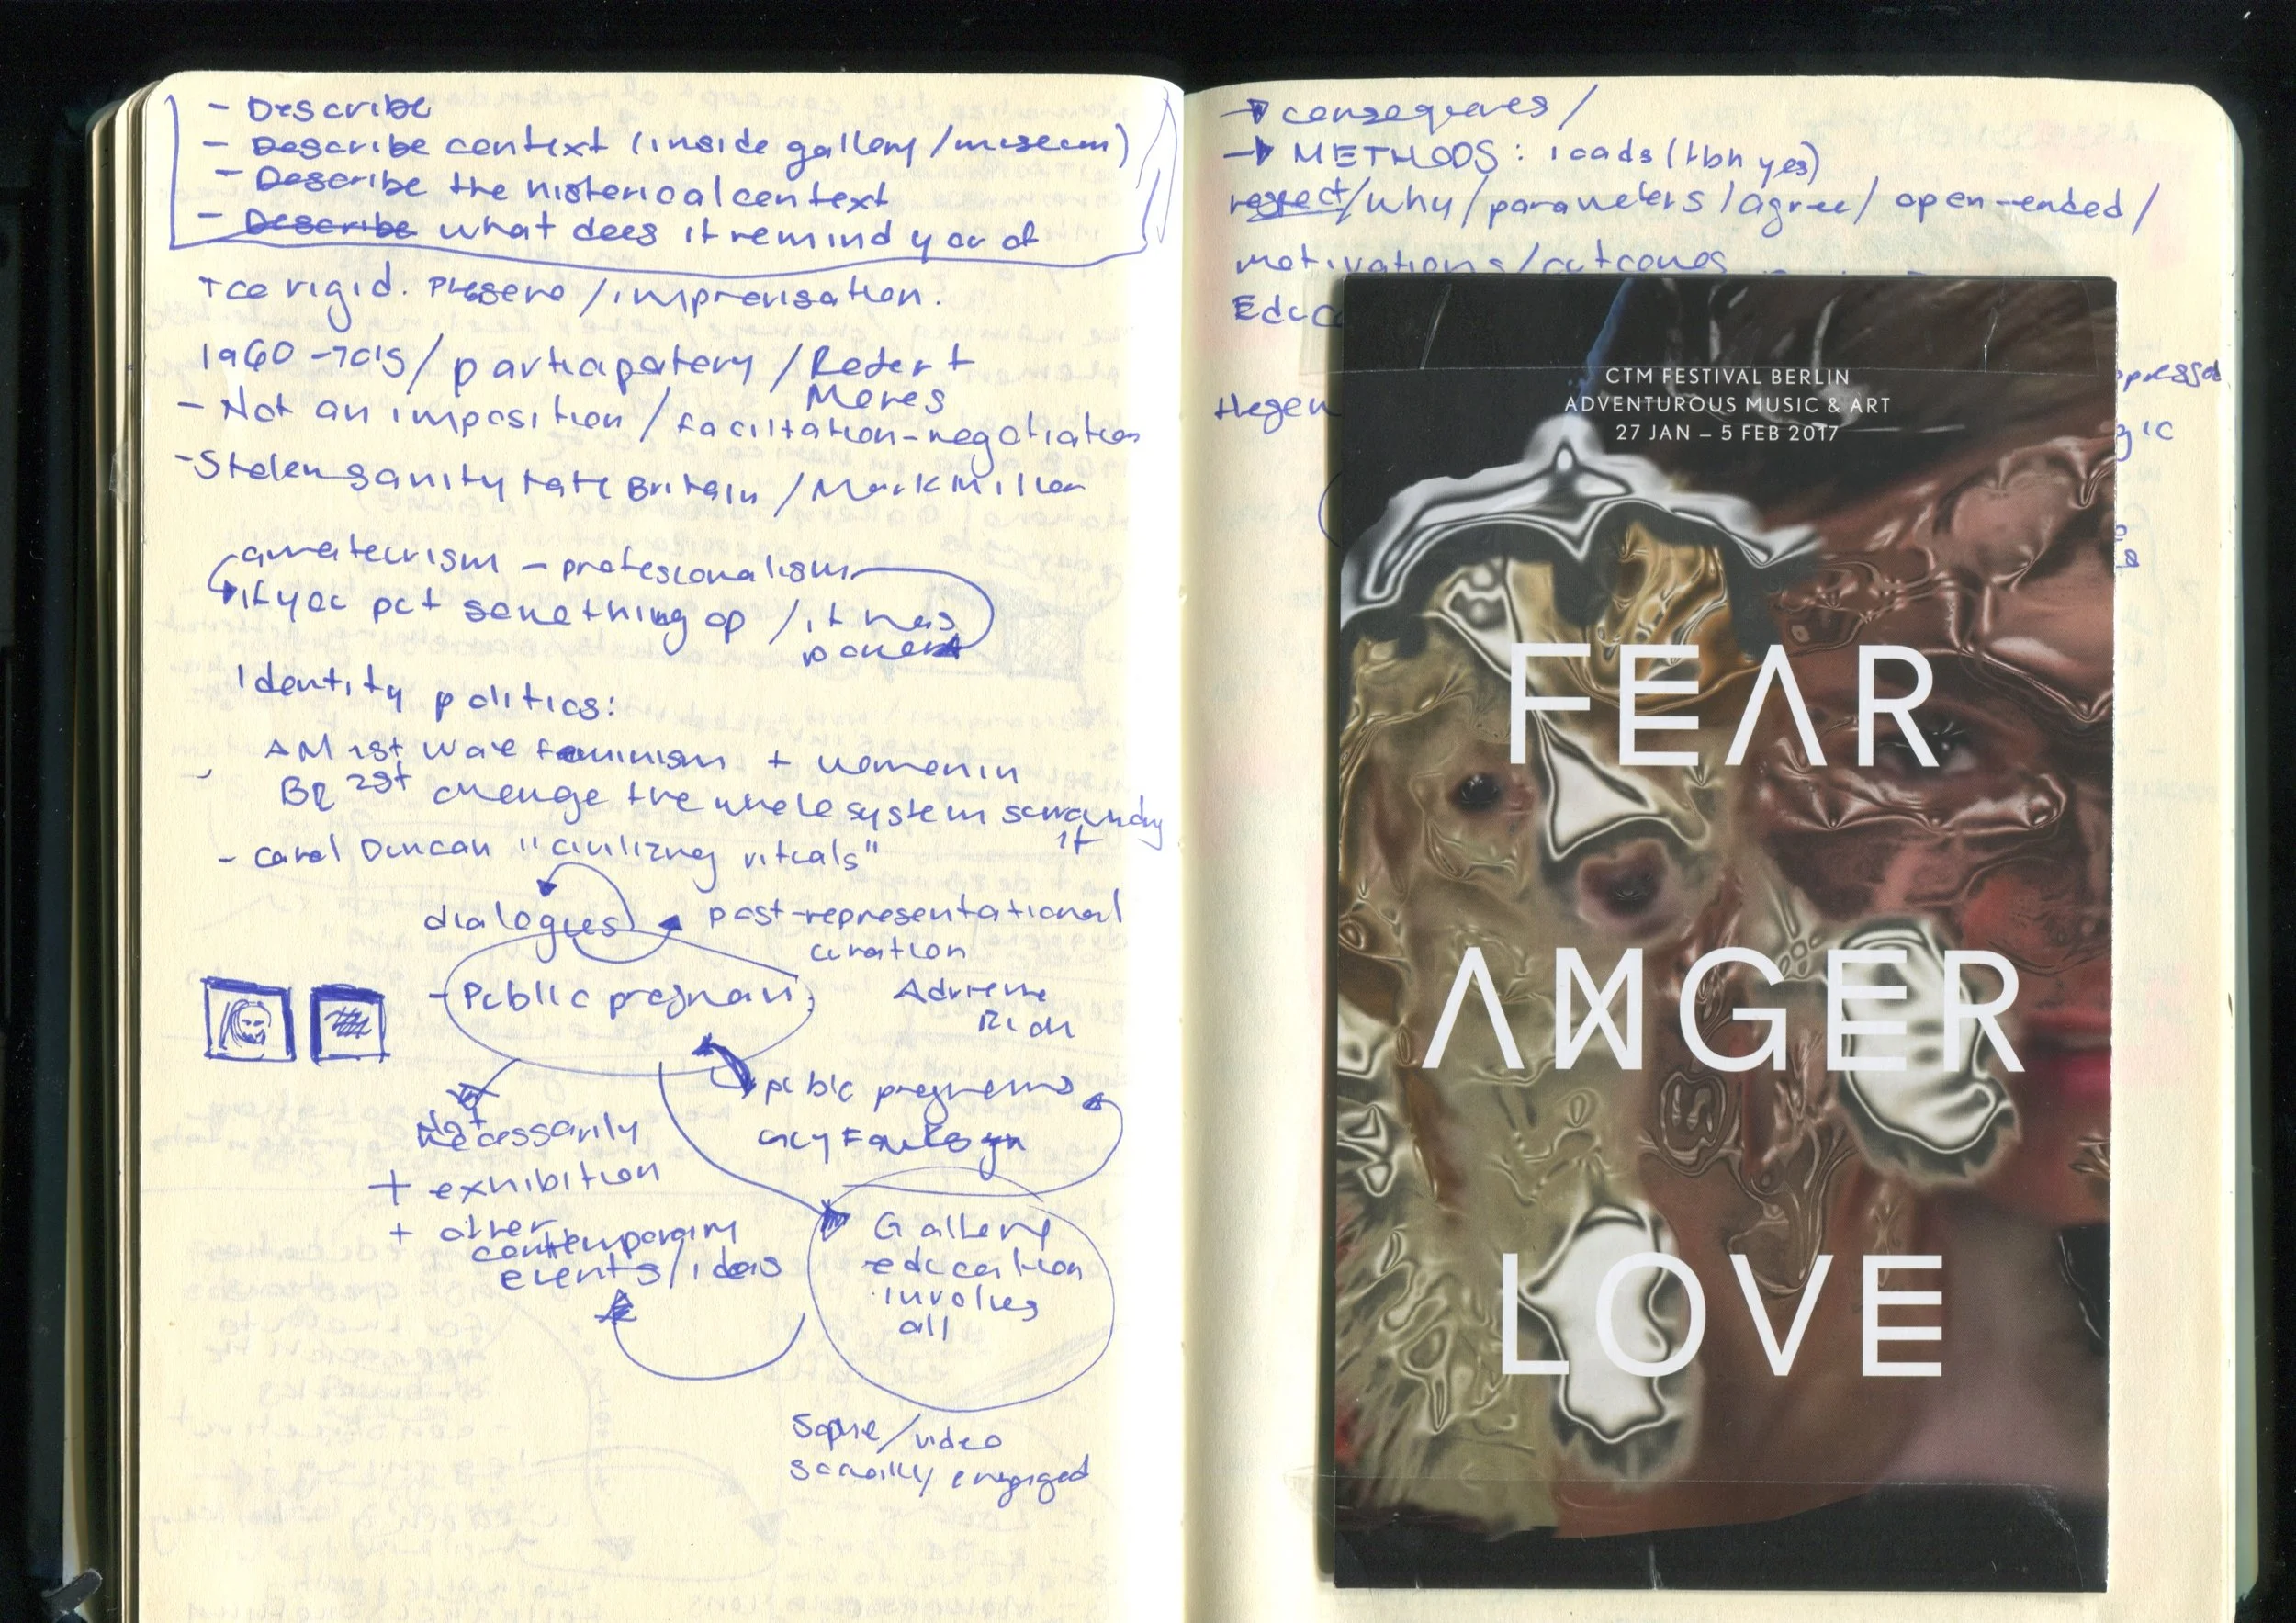 - Describe
- Describe context (inside gallery/museum)
- Describe the historical context
- Describe what does it remind you of
Too rigid. /improvisation.
1960-70's/participatory/Robert
Mores
- Not an imposition/facilitation-negotiation
- Stolen sanity tate Britain/Mark Miller
amateurism - profesionalism
if you put something up / it has
power
Identity politics:
AM 1st wave feminism + women in
BR 2st change the whole system
it
- Carol Duncan "civilizing rituals"
dialogues
post-representational
curation
- Public program
Adrienne
Rich
public programs
Not
necessarily
+ exhibition
+ other
contemporary
events/ideas
Gallery
education
involves
all
/video
socially engaged
→
→ METHODS: loads (tbh yes)
respect/why/parameters/agree/open-ended/
motivations/outcomes
CTM FESTIVAL BERLIN
ADVENTUROUS MUSIC & ART
27 JAN – 5 FEB 2017
FEAR
ANGER
LOVE